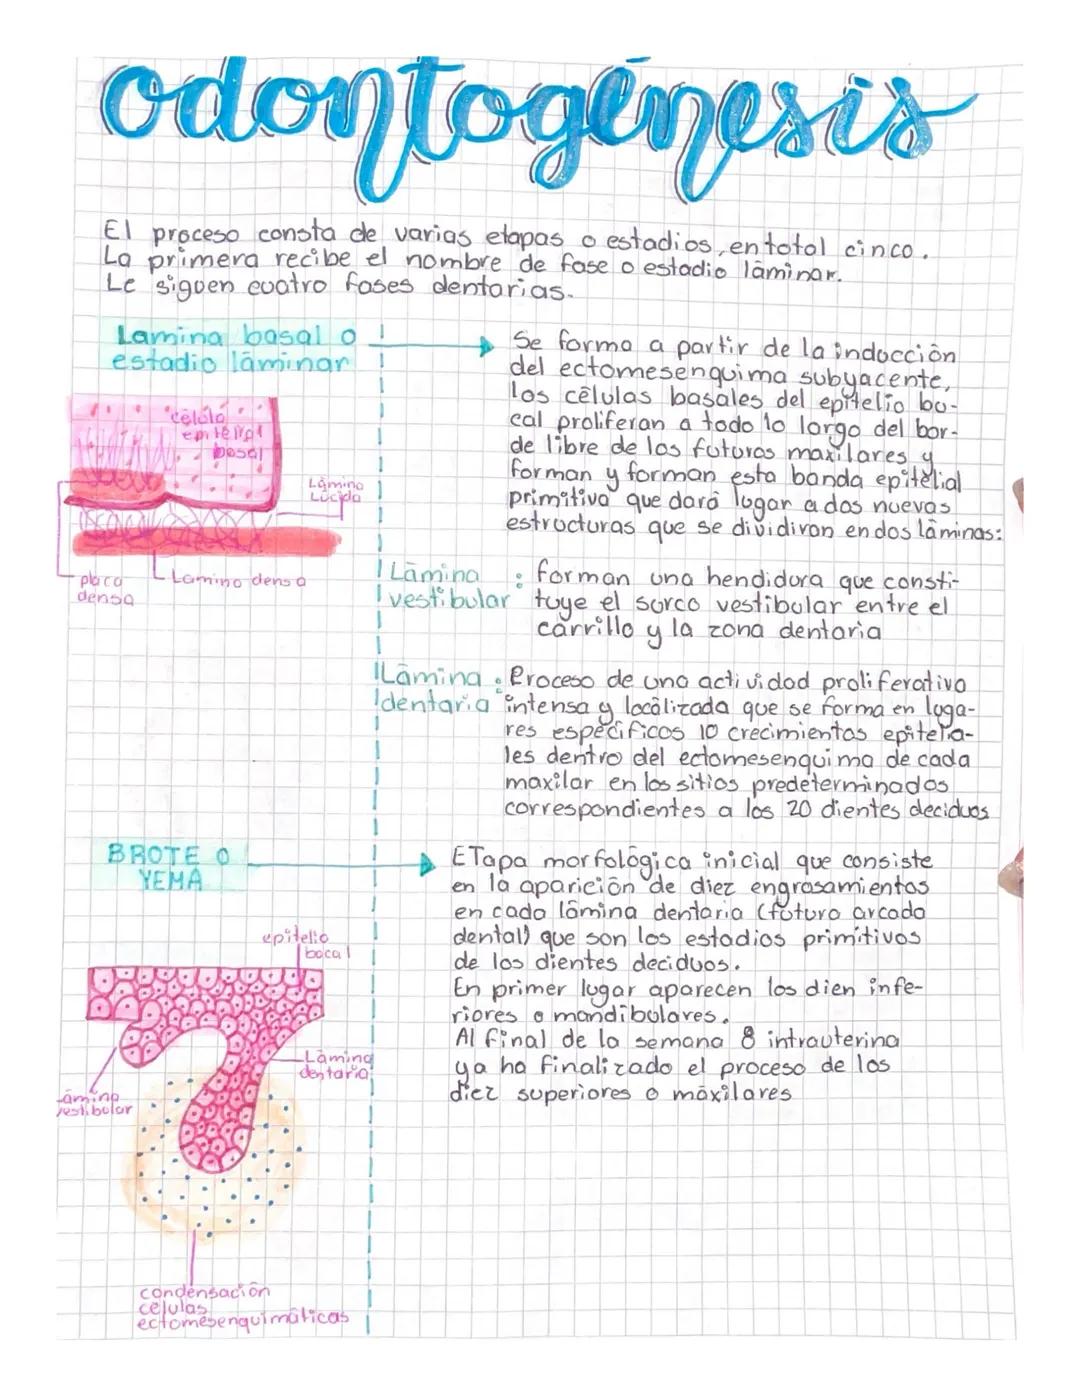 odontogénesis
El proceso consta de varias etapas o estadios, en total cinco.
La primera recibe el nombre de fase o estadio láminar.
Le siguen cuatro fases dentarias.
Lamina basal o
estadio láminar
Se forma a partir de la inducción
del ectomesenquima subyacente,
los células basales del epitelio bu-
cal proliferan a todo lo largo del bor-
de libre de los futuros maxilares y
forman y forman esta banda epitelial
primitiva que dará lugar a dos nuevas
estructuras que se dividiran en dos láminas:
célula
epitelial
basal
Lámina
Lúcida
placa
densa
Lamina densa
Lámina
vestibular
: forman una hendidura que consti-
tuye el surco vestibular entre el
carrillo y la zona dentaria
Lámina
dentaria
: Proceso de una actividad proliferativa
intensa y locálizada que se forma en luga-
res específicos 10 crecimientos epitelia-
les dentro del ectomesenquima de cada
maxilar en los sitios predeterminados
correspondientes a los 20 dientes deciduos
BROTE O
YEMA
ETapa morfológica inicial que consiste
en la aparición de diez engrosamientos
en cada lámina dentaria (futuro arcada
dental) que son los estadios primítivos
de los dientes deciduos.
En primer lugar aparecen los dien infe-
riores o mandibulares.
Al final de la semana 8 intrauterina
ya ha finalizado el proceso de los
diez superiores o máxilares
epitelio
bocal
Lámina
dentaria
Lámina
vestibular
condensación
celulas
ectomesenquimáticas